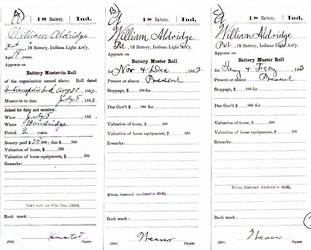 18 Battery, Ind.
William Aldridge
Pvt., 18 Battery, Indiana Light Art'y.
Age 19 years
Appears on
Battery Muster-in Roll
of the organization named above. Roll dated
Indianapolis Ind. Aug 20, 1862.
Muster-in to date
Joined for duty and enrolled:
When July 8, 1862.
Where Bainbridge
Period 3 years.
Bounty paid $ 100; due $ 100
Valuation of horse, $ 100
Valuation of horse equipments, $ 100
Remarks:
Book mark:
Copyist.
18 Battery, Ind.
William Aldridge
Pvt., 18 Battery, Indiana Light Art'y.
Appears on
Battery Muster Roll
for Nov & Dec, 1862.
Present or absent Present
Stoppage, $ 100 for
Due Gov't $ 100 for
Valuation of horse, $ 100
Valuation of horse equipments, $ 100
Remarks:
Book mark:
Weaver
Copyist.
18 Battery, Ind.
William Aldridge
Pvt., 18 Battery, Indiana Light Art'y.
Appears on
Battery Muster Roll
for Jany & Feby, 1863
Present or absent Present
Stoppage, $ 100 for
Due Gov't, $ 100 for
Valuation of horse, $ 100
Valuation of horse equipments, $ 100
Remarks:
Book mark:
Weaver
Copyist.